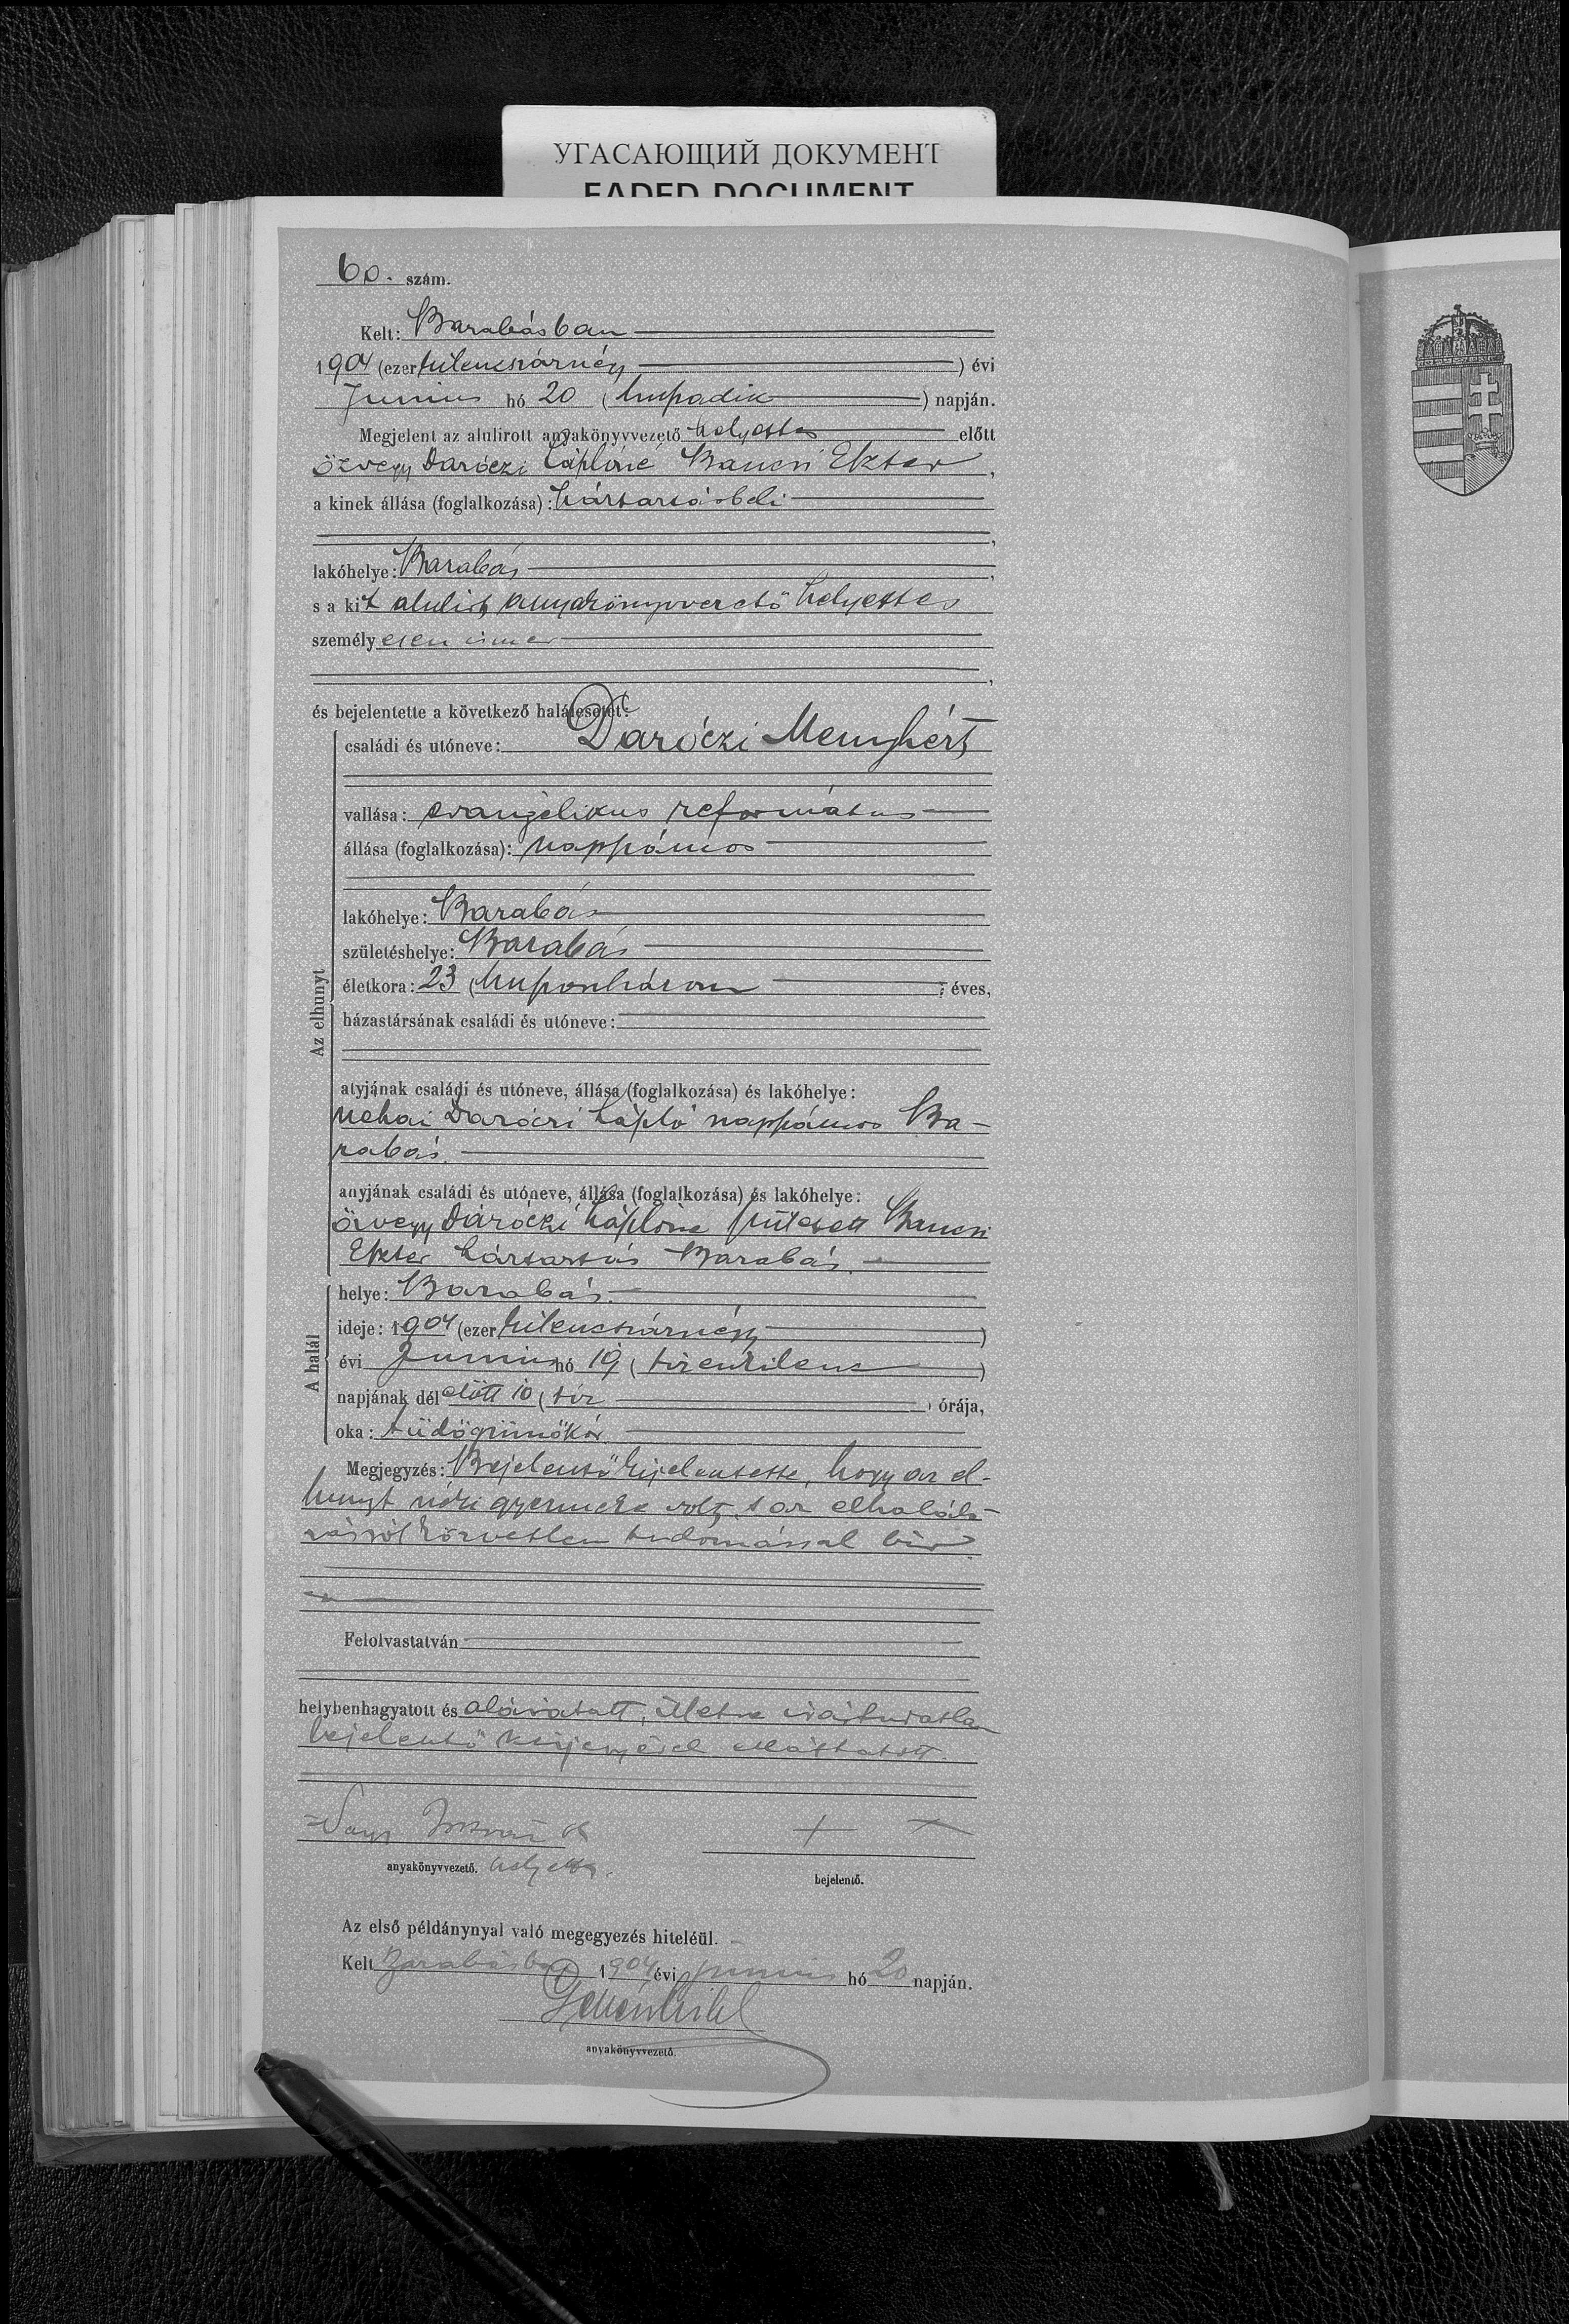 УГАСАЮЩИЙ ДОКУМЕНТ
FADED DOCUMENT
60. szám.
Kelt: Barabásban
1904 (ezer kilencszáznégy) évi
Junius hó 20 (huszadik) napján.
Megjelent az alulirott anyakönyvvezető helyettes előtt
özvegy Daróczi Lászlóné Bancsi Eszter,
a kinek állása (foglalkozása): háztartásbeli
lakóhelye: Barabás,
s a kit alulirt anyakönyvvezető helyettes
személyesen ismer,
és bejelentette a következő halálesetet:
Az elhunyt
családi és utóneve: Daróczi Menyhért
vallása: evangélikus református
állása (foglalkozása): napszámos
lakóhelye: Barabás
születéshelye: Barabás
életkora: 23 (huszonhárom) éves,
házastársának családi és utóneve:
atyjának családi és utóneve, állása (foglalkozása) és lakóhelye:
néhai Daróczi László napszámos Ba-
rabás.
anyjának családi és utóneve, állása (foglalkozása) és lakóhelye:
özvegy Daróczi Lászlóné született Bancsi
Eszter háztartás Barabás.
A halál
helye: Barabás.
ideje: 1904 (ezer kilencszáznégy)
évi Junius hó 19 (tizenkilenc)
napjának dél előtt 10 (tíz) órája,
oka: tüdőgümőkór
Megjegyzés: Bejelentő kijelentette, hogy az el-
hunyt néki gyermeke volt, s az elhalálo-
zásról közvetlen tudomással bír.
Felolvastatván
helybenhagyatott és aláíratott, illetve írástudatlan
bejelentő kézjegyével elláttatott.
Nagy István + +
anyakönyvvezető. helyettes. bejelentő.
Az első példánynyal való megegyezés hiteléül.
Kelt Barabásban 1904 évi junius hó 20 napján.
anyakönyvvezető.